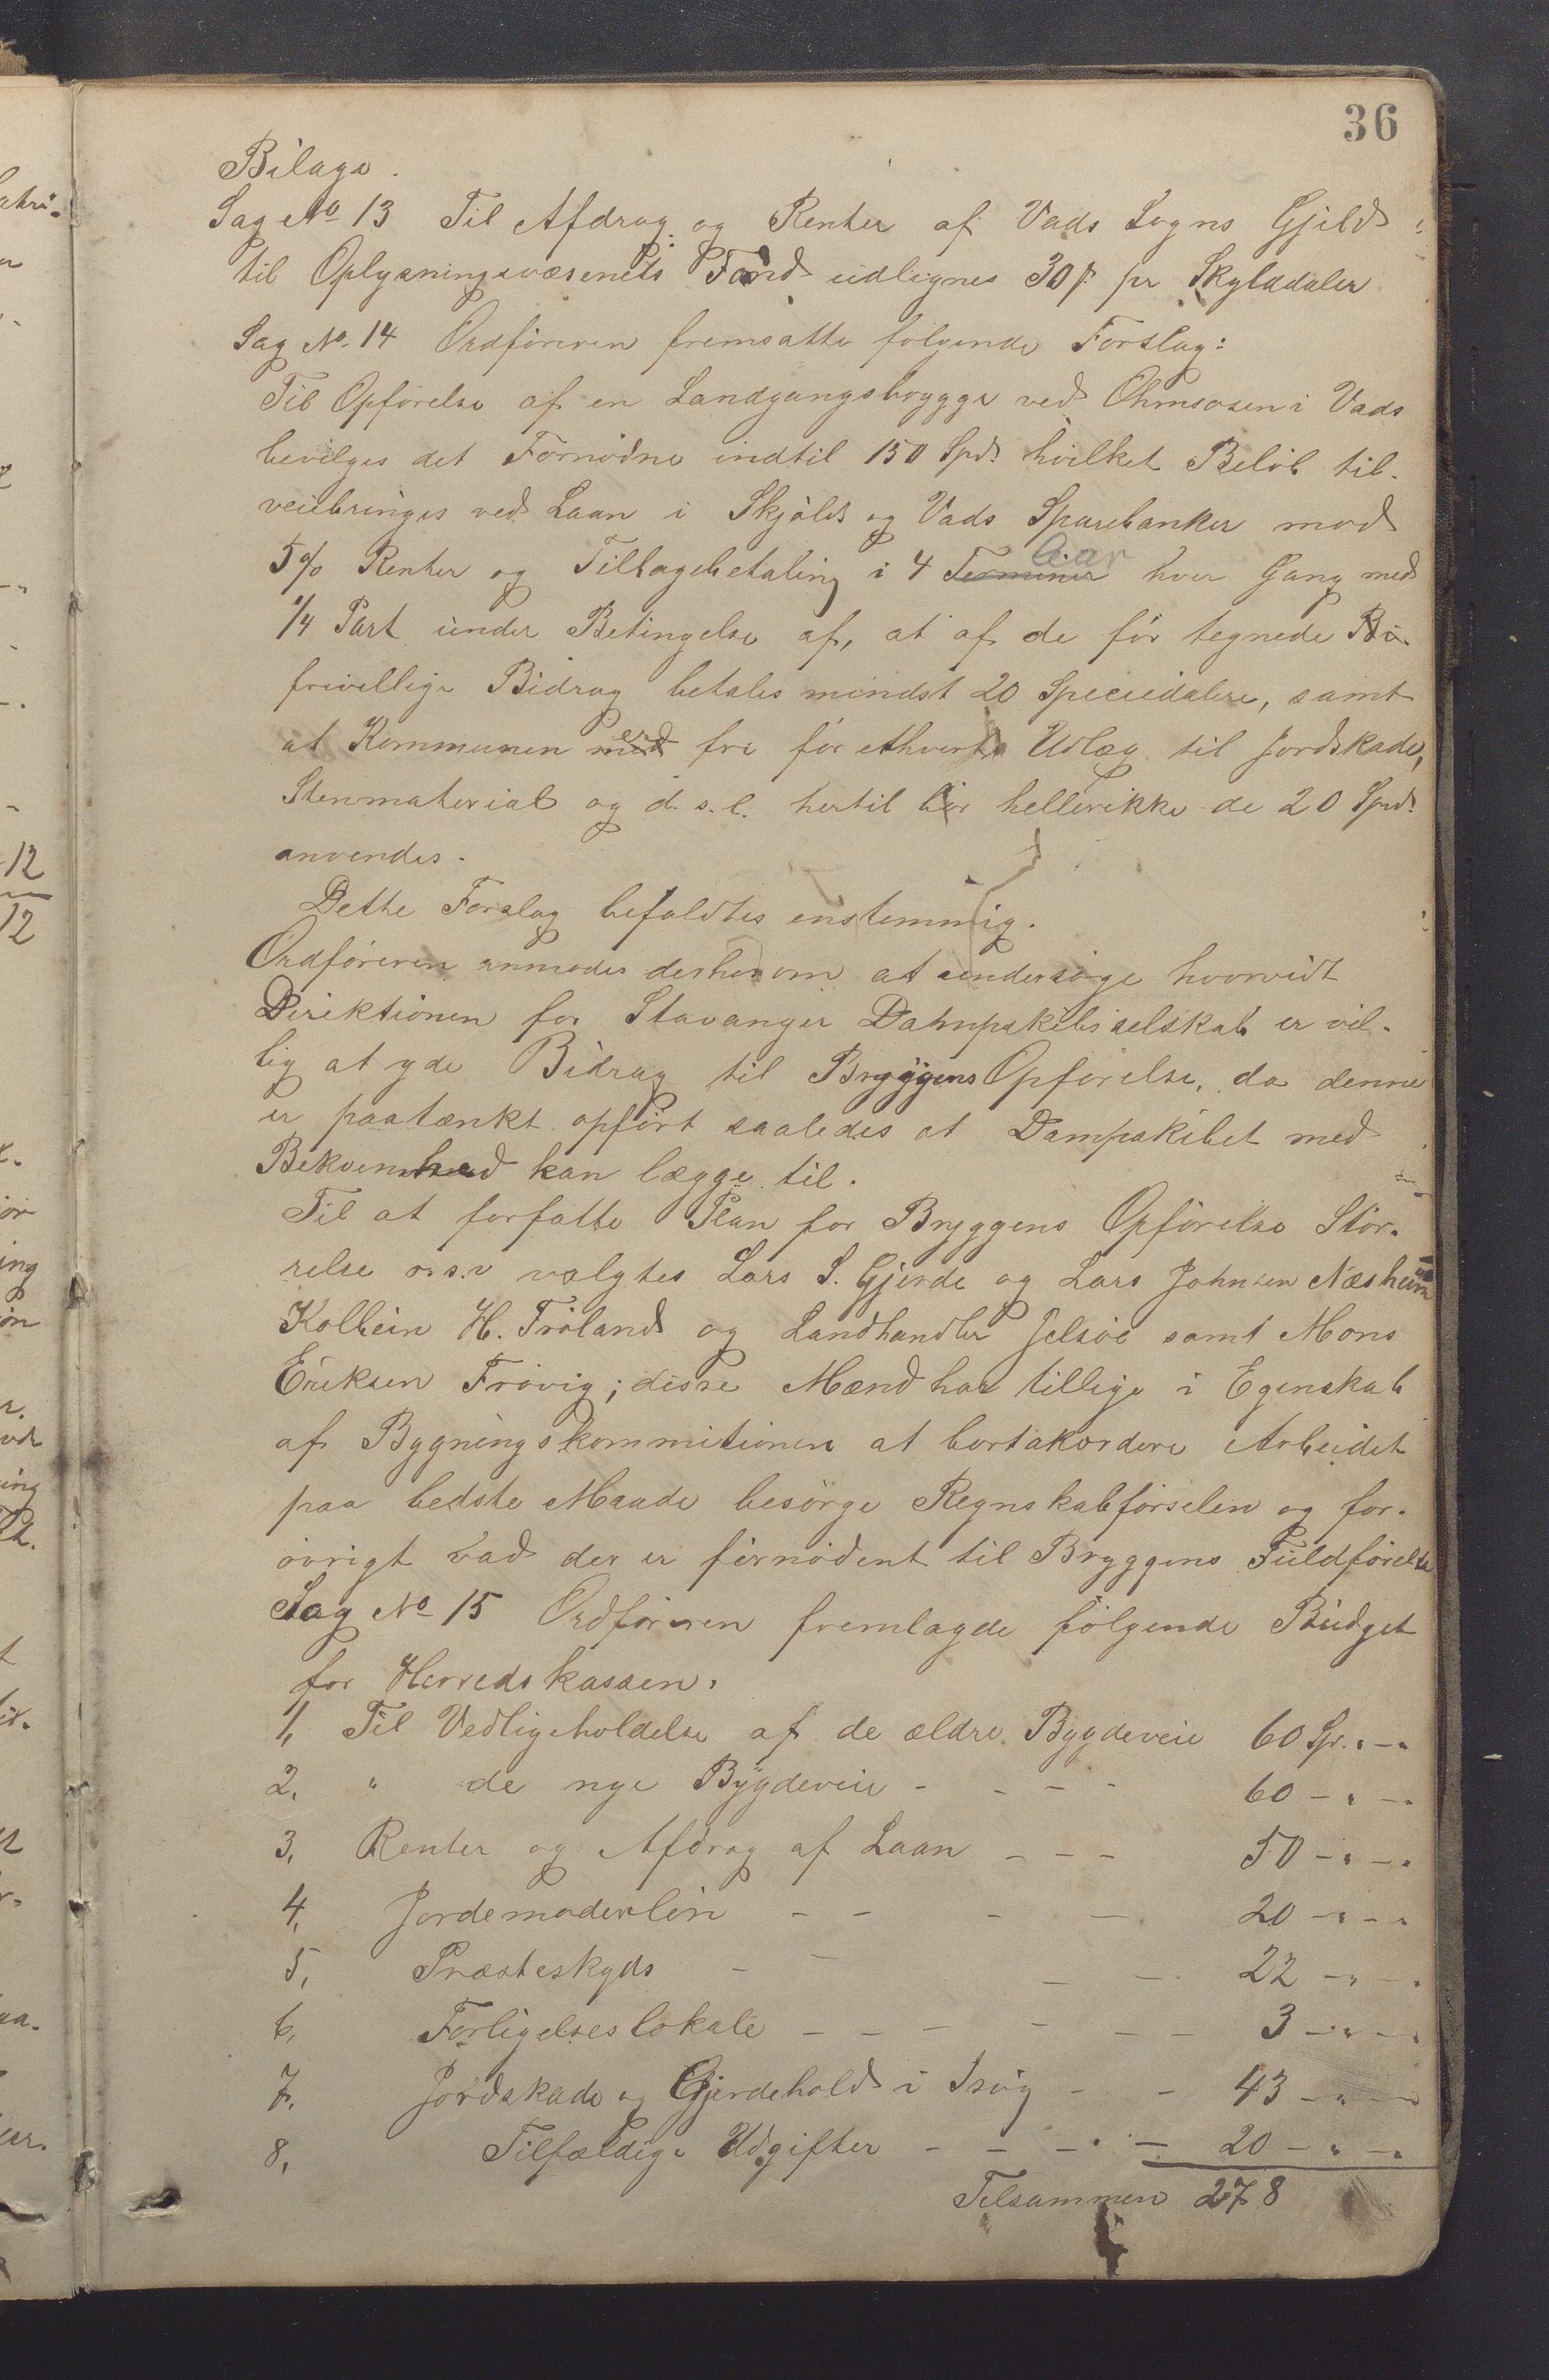 36
Bilage.
Sag No 13 Til Afdrag og Renter af Vads Sogns Gjeld
til Oplysningsvæsenets Fond udlignes 30 s. pr Skylddaler
Sag No. 14 Ordføreren fremsatte følgende Forslag:
Til Opførelse af en Landgangsbrygge ved Ølmsosen i Vads
bevilges det Fornødne indtil 150 Spd. hvilket Beløb til-
veiebringes ved Laan i Skjolds og Vads Sparebanker mod
5% Renter og Tilbagebetaling i 4 Terminer Aar hver Gang med
1/4 Part under Betingelse af, at af de før tegnede Bi-
frivillige Bidrag betales mindst 20 Speciedalere, samt
at Kommunen er fri for ethvert Udlæg til Jordskade,
Stenmaterial og d. s. l. hertil bør hellerikke de 20 Spd.
anvendes.
Dette Forslag befaldtes enstemmig.
Ordføreren anmodes derhos om at undersøge hvorvidt
Direktionen for Stavanger Dampskibsselskab er vil-
lig at yde Bidrag til Bryggens Opførelse, da denne
er paatænkt opført saaledes at Dampskibet med
Bekvemhed kan lægge til.
Til at forfatte Plan for Bryggens Opførelse Stør-
relse o.s.v valgtes Lars S. Gjerde og Lars Johnsen Næsheim
Kolbein H. Frøland og Landhandler Jelsøe samt Mons
Eriksen Frøvig; disse Mænd har tillige i Egenskab
af Bygningskommitionen at bortakordere Arbeidet
paa bedste Maade besørge Regnskabførselen og for-
øvrigt vad der er førnødent til Bryggens Fuldførelse
Sag No 15 Ordføreren fremlagde følgende Budget
for Herredskassen.
1, Til Vedligeholdelse af de ældre Bygdeveie 60 Sp. " - "
2, " de nye Bygdeveie - - - - 60 - " - "
3, Renter og Afdrag af Laan - - - 50 - " - "
4, Jordemoderløn - - - - 20 - " - "
5, Præsteskyds - - - - 22 - " - "
6, Forligelseslokale - - - - - - 3 - " - "
7, Jordskade og Gjerdehold i Isvig - - 43 - " - "
8, Tilfældige Udgifter - - - - 20 - " - "
Tilsammen 278